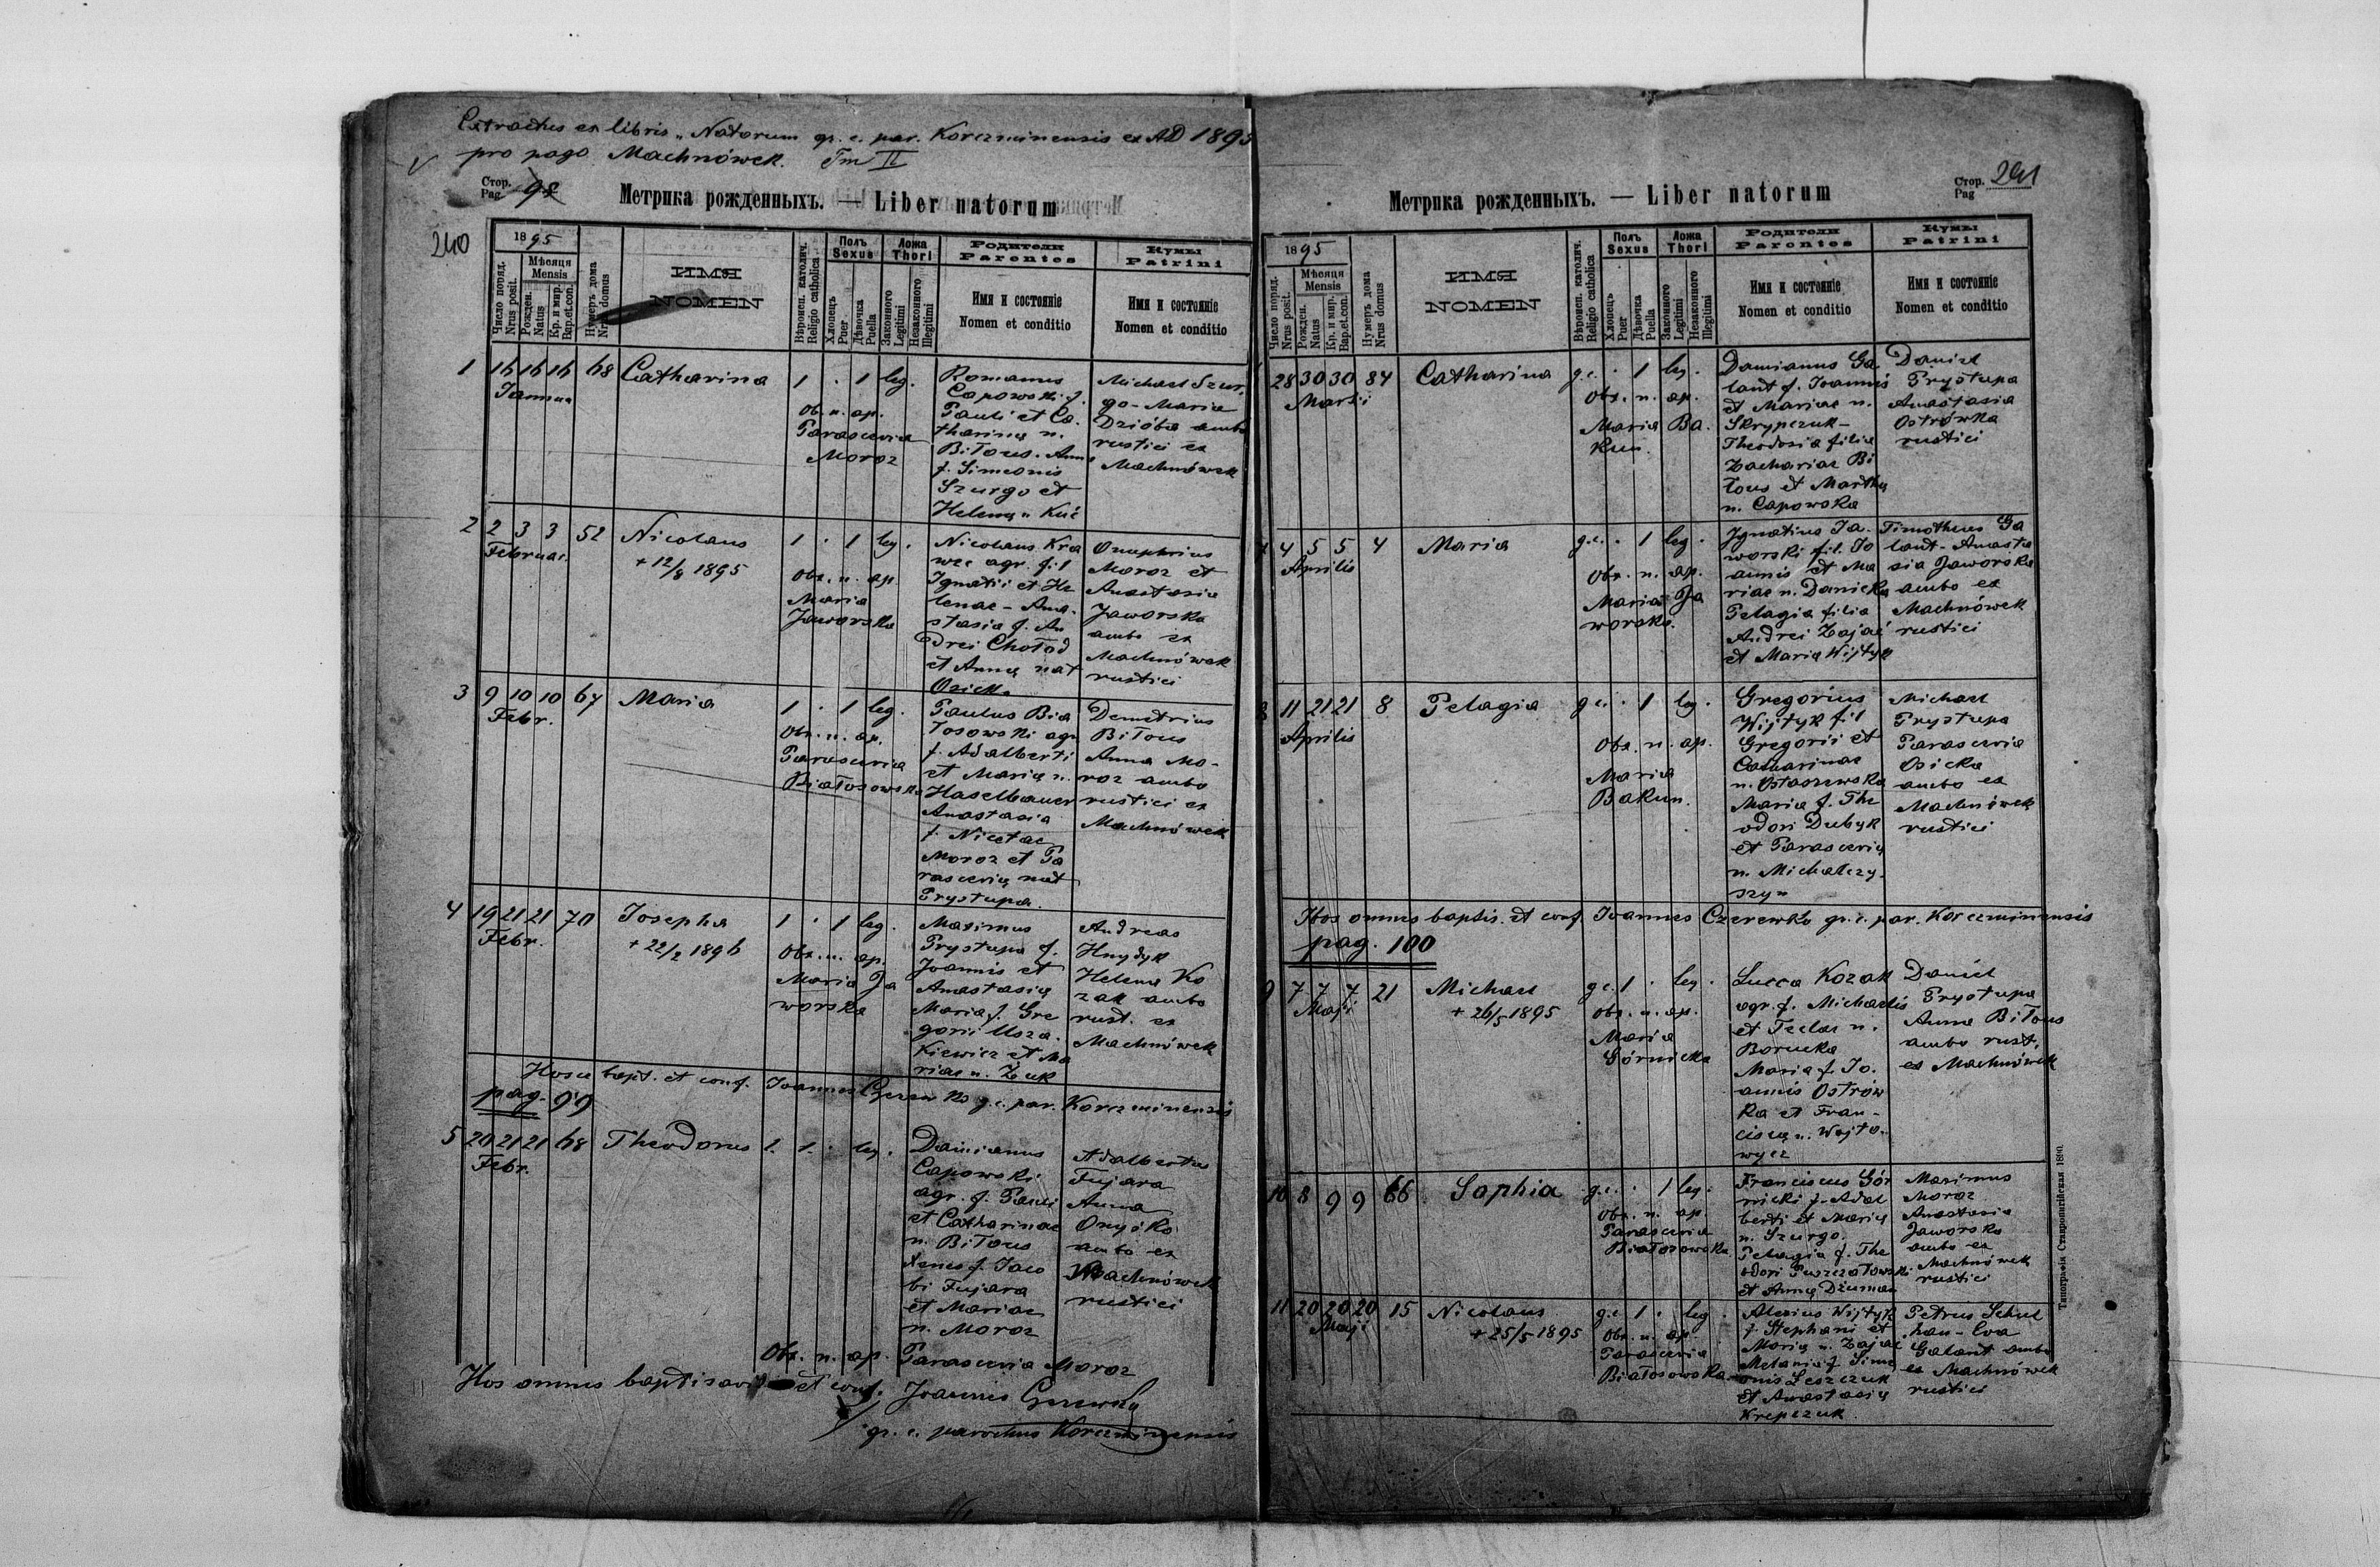 Extractus ex libris „Natorum gr. c. par. Korczminensis ex AD 1895
pro pago Machnówek. Tm II
Стор.
Pag. 98
240
Метрика рожденныхъ. — Liber natorum
1895
Число поряд.
Nrus posit.
Мѣсяця
Mensis
Рожден.
Natus
Кр. и мир.
Bap. et. con.
Нумеръ дома
Nrus domus
ИМЯ
NOMEN
Вѣроисп. католич.
Religio catholica
Полъ
Sexus
Хлопецъ
Puer
Дѣвочка
Puella
Ложа
Thori
Законного
Legitimi
Незаконного
Illegitimi
Родители
Parentes
Имя и состояніе
Nomen et conditio
Кумы
Patrini
Имя и состояніе
Nomen et conditio
1 16 16 16 68 Catharina 1 . 1 leg.
Januar
Obs. n. ap.
Parascevia
Moroz
Romanus
Capowski f.
Pauli et Ca-
tharinę n.
Biłous. Anna
f. Simeonis
Szurgo et
Helenę n. Kuć
Michael Szur-
go - Maria
Dzióba ambo
rustici ex
Machnówek
2 2 3 3 52 Nicolaus 1 . 1 leg.
Februar.
+ 12/8 1895
Obs. n. ap.
Maria
Jaworska
Nicolaus Kra
wec agr. fil
Ignatii et He
lenae - Ana-
stasia f. An
drei Chołod
et Annę nat
Osicka
Onuphrius
Moroz et
Anastasia
Jaworska
ambo ex
Machnówek
rustici
3 9 10 10 67 Maria 1 . 1 leg.
Febr.
Obs. n. ap.
Parascevia
Białosowska
Paulus Bia
łosowski agr
f. Adalberti
et Marię n.
Haselbauer
Anastasia
f. Nicetae
Moroz et Pa
rascevię nat
Prystupa.
Demetrius
Biłous
Anna Mo-
roz ambo
rustici ex
Machnówek
4 19 21 21 70 Josepha 1 . 1 leg.
Febr.
+ 22/2 1896
Obs. n. ap.
Maria Ja
worska
Maximus
Prystupa f.
Joannis et
Anastasię
Maria f. Gre
gorii Usza-
kiewicz et Ma
riae n. Żuk
Andreas
Hnydyk
Helena Ko
zak ambo
rust. ex
Machnówek
Hosce bapt. et conf. Joannes Czerewko g. c. par. Korczminensis
pag. 99
5 20 21 21 68 Theodorus 1. 1. . leg.
Febr.
Damianus
Capowski
agr. f. Pauli
et Catharinae
n. Biłous
Xenes f. Jaco
bi Fujara
et Mariae
n. Moroz
Adalbertus
Fujara
Anna
Onyśko
ambo ex
Machnówek
rustici
Obs. n. ap. Parascevia Moroz
Hos omnes baptisavit et conf. Joannes Czerewko
gr. c. parochus Korczminensis
Стор.
Pag 241
Метрика рожденныхъ. — Liber natorum
1895
Число поряд.
Nrus posit.
Мѣсяця
Mensis
Рожден.
Natus
Кр. и мир.
Bap. et. con.
Нумеръ дома
Nrus domus
ИМЯ
NOMEN
Вѣроисп. католич.
Religio catholica
Полъ
Sexus
Хлопецъ
Puer
Дѣвочка
Puella
Ложа
Thori
Законного
Legitimi
Незаконного
Illegitimi
Родители
Parentes
Имя и состояніе
Nomen et conditio
Кумы
Patrini
Имя и состояніе
Nomen et conditio
28 30 30 84 Catharina g.c. . 1 leg.
Martii
Obs. n. ap.
Maria Ba-
kun.
Damianus Ga
lant f. Joannis
et Mariae n.
Skrypczuk -
Theodosia filia
Zachariae Bi
łous et Marthę
n. Capowska
Daniel
Prystupa
Anastasia
Ostrówka
rustici
4 5 5 4 Maria g.c. . 1 leg.
Aprilis
Obs. n. ap.
Maria Ja
worska.
Ignatius Ja-
worski fil. Jo
annis et Ma
riae n. Danicka
Pelagia filia
Andrei Zając
et Marię Wijtyk
Timotheus Ga
lant - Anasta
sia Jaworska
ambo ex
Machnówek
rustici
8 11 21 21 8 Pelagia g.c. . 1 leg.
Aprilis
Obs. n. ap.
Maria
Bakun.
Gregorius
Wijtyk fil
Gregorii et
Catharinae
n. Ostaszewska
Maria f. The
odori Dubyk
et Parascevię
n. Michalczy-
szyn
Michael
Prystupa
Parascevia
Osicka
ambo ex
Machnówek
rustici
Hos omnes baptis. et conf. Joannes Czerewko gr. c. par. Korczminensis
pag. 100
9 7 7 7 21 Michael g.c. 1 . leg.
Maji
+ 26/5 1895
Obs. n. ap.
Maria
Górnicka
Lucca Kozak
agr. f. Michaelis
et Teclae n.
Borucka
Maria f. Jo-
annis Ostrów
ka et Fran-
ciscę n. Wojto-
wycz
Daniel
Prystupa
Anna Biłous
ambo rust.
ex Machnówek
10 8 9 9 66 Sophia g.c. . 1 leg.
Obs. n. ap.
Parascevia
Białosowska
Franciscus Gór
nicki f. Adal
berti et Marię
n. Szurgo.
Pelagia f. The
odori Puszczałowski
et Annę Dżuman
Maximus
Moroz
Anastasia
Jaworska
ambo ex
Machnówek
rustici
11 20 20 20 15 Nicolaus g.c. 1 . leg.
Maji
+ 25/5 1895
Obs. n. ap.
Parascevia
Białosowska
Alexius Wijtyk
f. Stephani et
Marię n. Zając
Melania f. Sime
onis Leszczuk
et Anastasię
Krepczuk.
Petrus Schul
han - Eva
Galant ambo
ex Machnówek
rustici
Типографія Ставропигійская 1890.